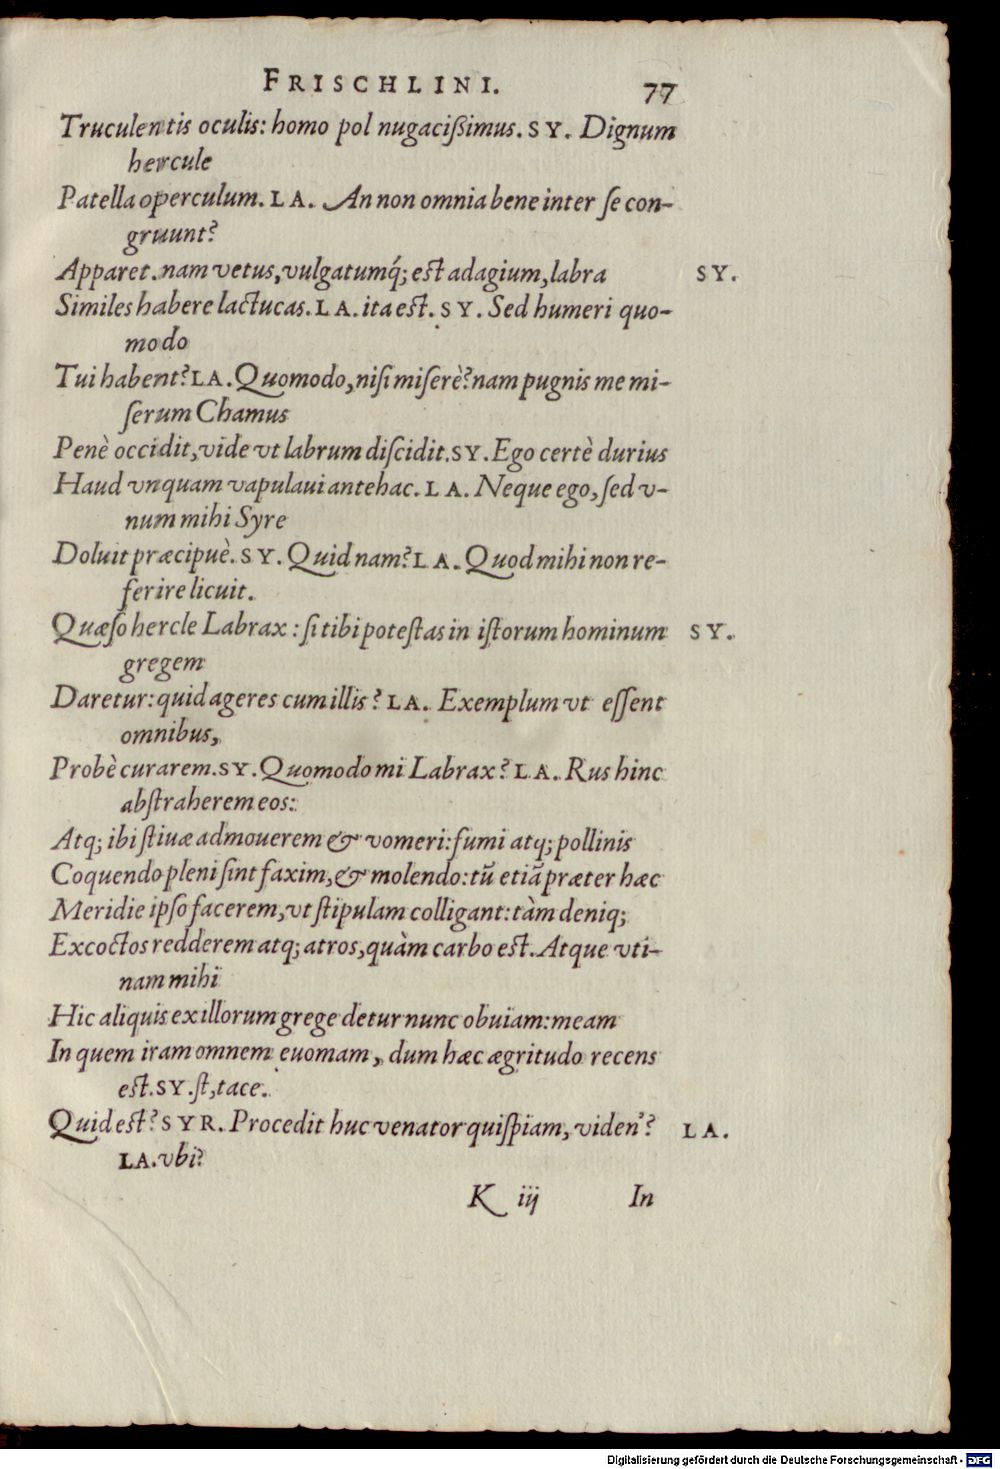 FRISCHLINI. 77
Truculentis oculis: homo pol nugacißimus. SY. Dignum
hercule
Patella operculum. LA. An non omnia bene inter ſe con-
gruunt?
Apparet. nam vetus, vulgatumq́; est adagium, labra SY.
Similes habere lactucas. LA. ita est. SY. Sed humeri quo-
modo
Tui habent? LA. Quomodo, niſi miſerè? nam pugnis me mi-
ſerum Chamus
Penè occidit, vide vt labrum diſcidit. SY. Ego certè durius
Haud vnquam vapulaui antehac. LA. Neque ego, ſed v-
num mihi Syre
Doluit præcipuè. SY. Quid nam? LA. Quod mihi non re-
ferire licuit.
Quæſo hercle Labrax: ſi tibi poteſtas in iſtorum hominum SY.
gregem
Daretur: quid ageres cum illis? LA. Exemplum vt eſſent
omnibus,
Probè curarem. SY. Quomodo mi Labrax? LA. Rus hinc
abſtraherem eos:
Atq; ibi ſtiuæ admouerem & vomeri: fumi atq; pollinis
Coquendo pleni ſint faxim, & molendo: tū etiā præter hæc
Meridie ipſo facerem, vt ſtipulam colligant: tàm deniq;
Excoctos redderem atq; atros, quàm carbo est. Atque vti-
nam mihi
Hic aliquis ex illorum grege detur nunc obuiam: meam
In quem iram omnem euomam, dum hæc ægritudo recens
est. SY. ſt, tace.
Quid est? SYR. Procedit huc venator quiſpiam, viden'? LA.
LA. vbi?
K iij In
Digitalisierung gefördert durch die Deutsche Forschungsgemeinschaft - DFG